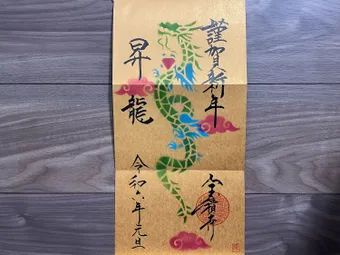 謹賀新年
昇龍
令和六年元旦